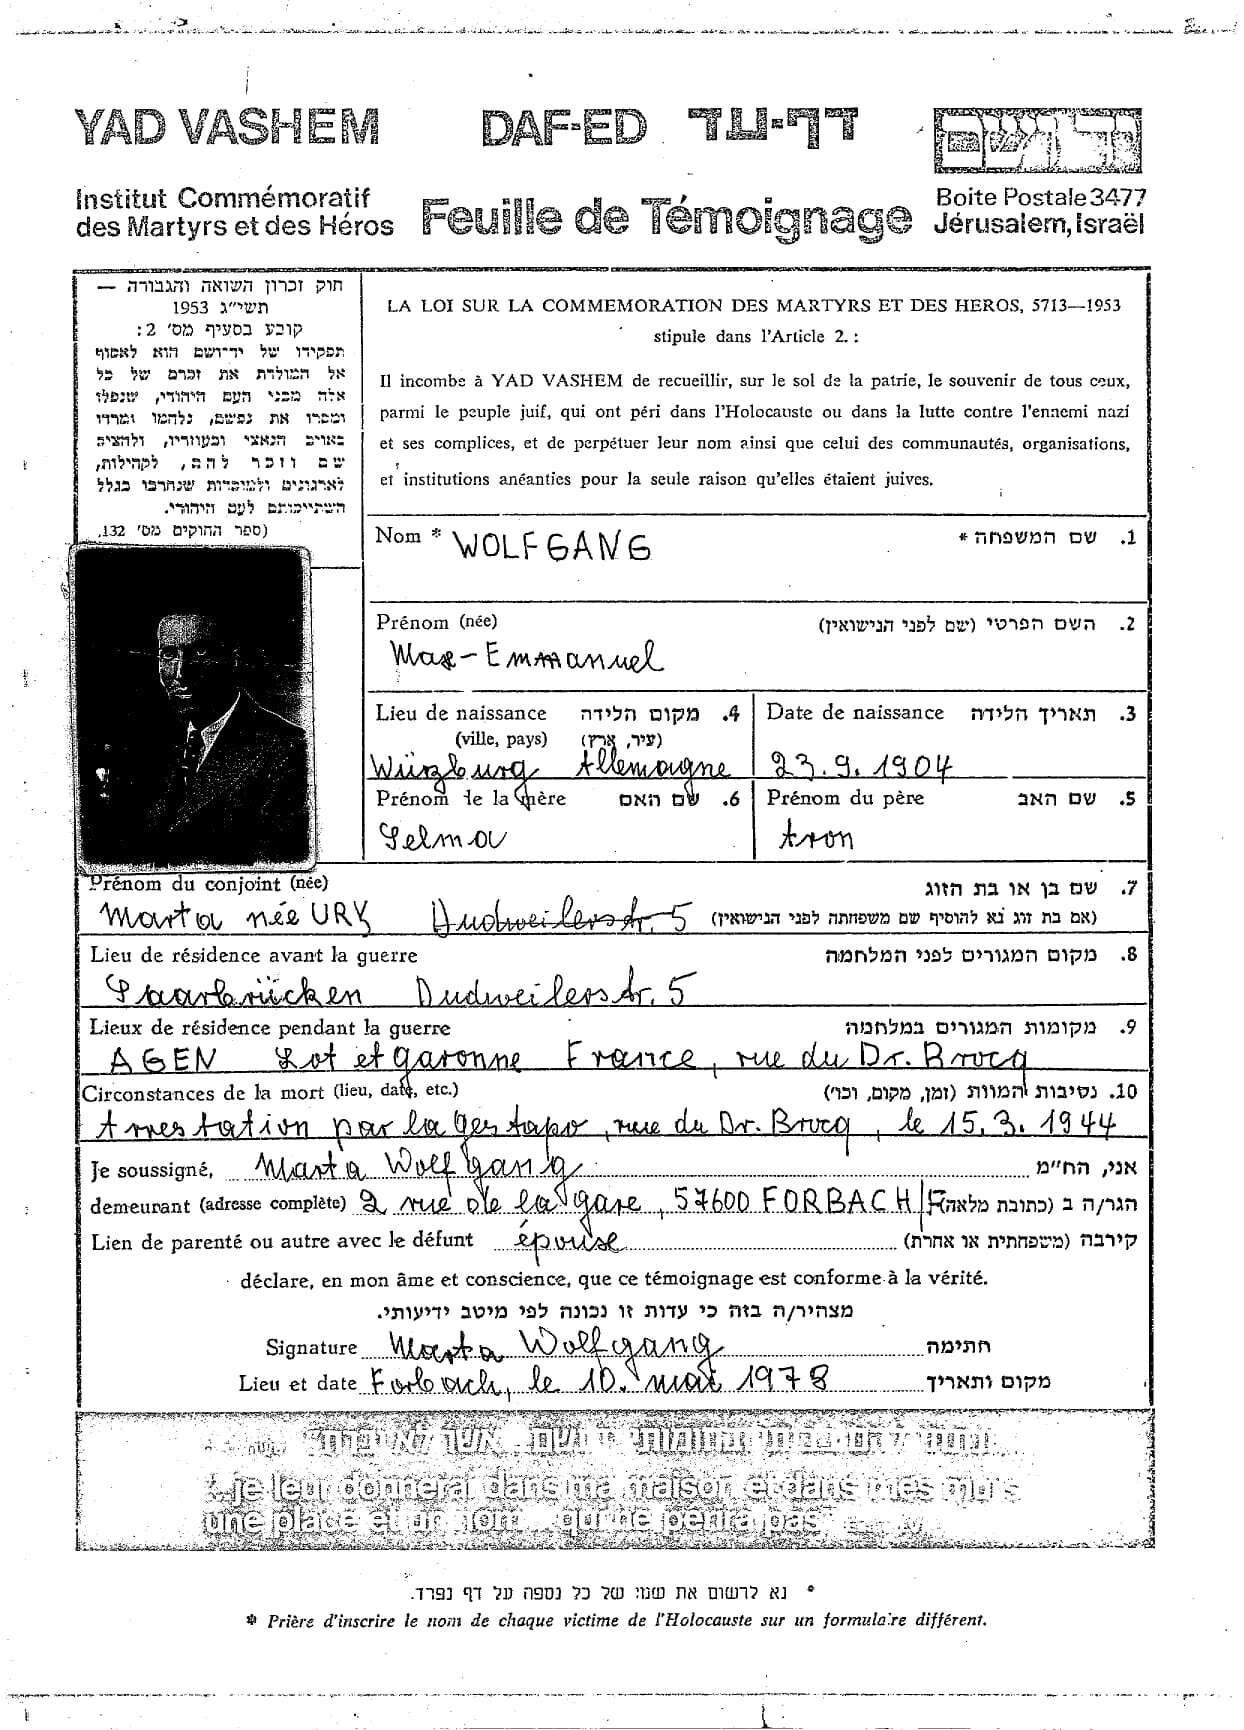 YAD VASHEM DAF-ED דף-עד
Institut Commémoratif
des Martyrs et des Héros
Feuille de Témoignage
Boite Postale 3477
Jérusalem, Israël
חוק זכרון השואה והגבורה —
תשי״ג 1953
קובע בסעיף מס׳ 2:
תפקידו של יד־ושם הוא לאסוף
אל המולדת את זכרם של כל
אלה מבני העם היהודי, שנפלו
ומסרו את נפשם, נלחמו ומרדו
באויב הנאצי ובעוזריו, ולהציב
שם וזכר להם, לקהילות,
לארגונים ולמוסדות שנחרבו בגלל
השתייכותם לעם היהודי.
(ספר החוקים מס׳ 132,
LA LOI SUR LA COMMEMORATION DES MARTYRS ET DES HEROS, 5713—1953
stipule dans l'Article 2. :
Il incombe à YAD VASHEM de recueillir, sur le sol de la patrie, le souvenir de tous ceux,
parmi le peuple juif, qui ont péri dans l'Holocauste ou dans la lutte contre l'ennemi nazi
et ses complices, et de perpétuer leur nom ainsi que celui des communautés, organisations,
et institutions anéanties pour la seule raison qu'elles étaient juives.
Nom * WOLFGANG 1. שם המשפחה *
Prénom (née) 2. השם הפרטי (שם לפני הנישואין)
Max-Emmanuel
Lieu de naissance 4. מקום הלידה
(ville, pays) (עיר, ארץ)
Würzburg Allemagne
Date de naissance 3. תאריך הלידה
23.9.1904
Prénom de la mère 6. שם האם
Selma
Prénom du père 5. שם האב
Aron
Prénom du conjoint (née) 7. שם בן או בת הזוג
Marta née URY Dudweilerstr. 5 (אם בת זוג נא להוסיף שם משפחתה לפני הנישואין)
Lieu de résidence avant la guerre 8. מקום המגורים לפני המלחמה
Saarbrücken Dudweilerstr. 5
Lieux de résidence pendant la guerre 9. מקומות המגורים במלחמה
AGEN Lot et garonne France, rue du Dr. Brocq
Circonstances de la mort (lieu, date, etc.) 10. נסיבות המוות (זמן, מקום, וכו׳)
Arrestation par la Gestapo, rue du Dr. Brocq, le 15.3.1944
Je soussigné, Marta Wolfgang אני, הח״מ
demeurant (adresse complète) 2 rue de la gare, 57600 FORBACH /F הגר/ה ב (כתובת מלאה)
Lien de parenté ou autre avec le défunt épouse קירבה (משפחתית או אחרת)
déclare, en mon âme et conscience, que ce témoignage est conforme à la vérité.
מצהיר/ה בזה כי עדות זו נכונה לפי מיטב ידיעותי.
Signature Marta Wolfgang חתימה
Lieu et date Forbach, le 10. mai 1978 מקום ותאריך
...je leur donnerai dans ma maison et dans mes murs
une place et un nom... qui ne périra pas
* נא לרשום את שמו של כל נספה על דף נפרד.
* Prière d'inscrire le nom de chaque victime de l'Holocauste sur un formulaire différent.